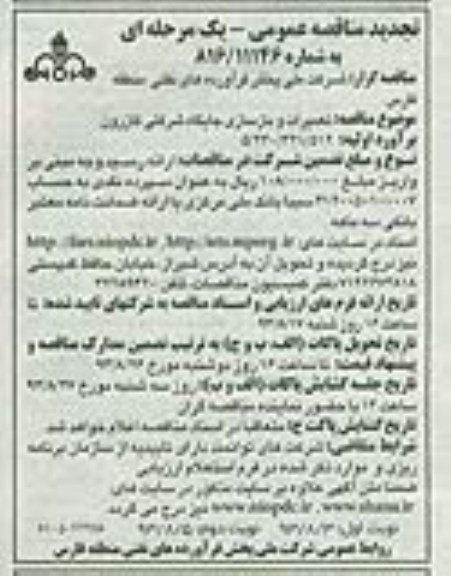 تجدید مناقصه عمومی - یک مرحله ای
به شماره ۸۱۶/۱۱۱۴۶
مناقصه گزار: شرکت ملی پخش فرآورده های نفتی منطقه
فارس
موضوع مناقصه: تعمیرات و بازسازی جایگاه شرکتی کازرون
برآورد اولیه:
نوع و مبلغ تضمین شرکت در مناقصات: ارائه رسید وجه مبنی بر
واریز مبلغ ۱۰۸/۰۰۰/۰۰۰ ریال به عنوان سپرده نقدی به حساب
سیبا بانک ملی مرکزی یا ارائه ضمانت نامه معتبر
بانکی سه ماهه
اسناد در سایت های: http://iets.mporg.ir , http://fars.niopdc.ir
نیز درج گردیده و تحویل آن به آدرس شیراز خیابان حافظ کدپستی
دفتر کمیسیون مناقصات تلفن
تاریخ ارائه فرم های ارزیابی و اسناد مناقصه به شرکتهای تایید شده: تا
ساعت ۱۴ روز شنبه ۹۳/۸/۱۷
تاریخ تحویل پاکات (الف، ب و ج) به ترتیب تضمین مدارک مناقصه و
پیشنهاد قیمت: تا ساعت ۱۴ روز دوشنبه مورخ ۹۳/۸/۲۶
تاریخ جلسه گشایش پاکات (الف و ب): روز سه شنبه مورخ ۹۳/۸/۲۷
ساعت ۱۴ با حضور نماینده مناقصه گران
تاریخ گشایش پاکت ج: متعاقبا در اسناد مناقصه اعلام خواهد شد.
شرایط متقاضی: شرکت های توانمند دارای تاییدیه از سازمان برنامه
ریزی و موارد ذکر شده در فرم استعلام ارزیابی
ضمنا متن آگهی علاوه بر سایت مذکور در سایت های
www.niopdc.ir , www.shana.ir نیز درج می گردد.
نوبت اول: ۹۳/۸/۳ نوبت دوم: ۹۳/۸/۵
روابط عمومی شرکت ملی پخش فرآورده های نفتی منطقه فارس